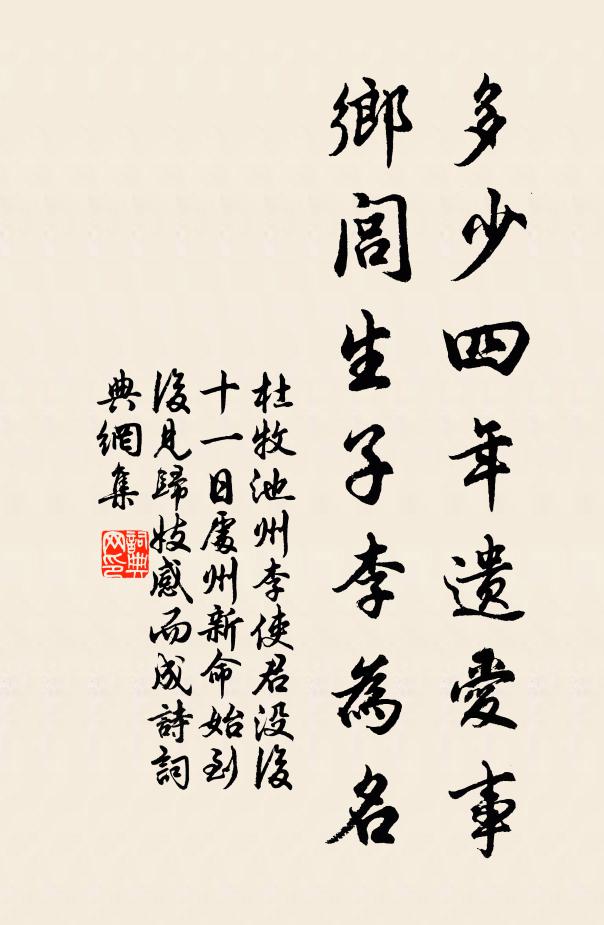 多少四年遺愛事
鄉閭生子李為名
杜牧池州李使君沒後
十一日處州新命始到
後見歸妓感而成詩詞
典網集
詞典
网印